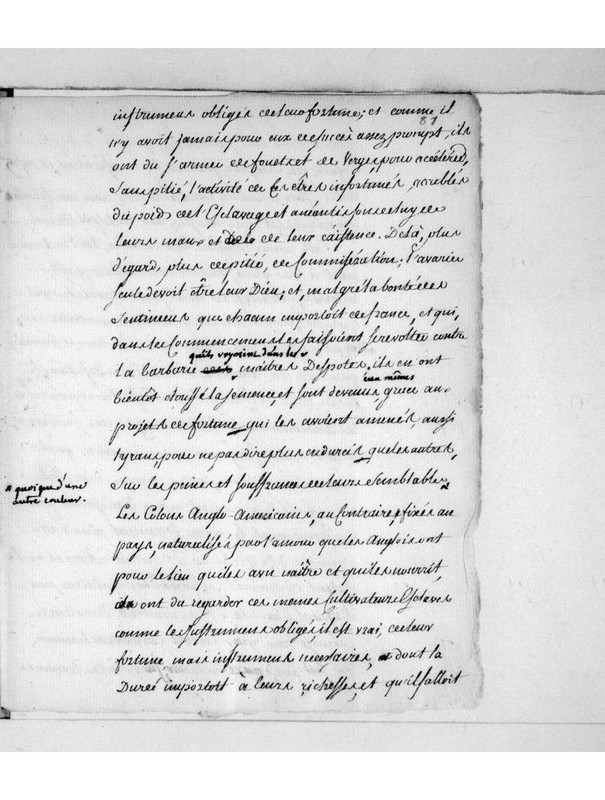 instrumens obligés de leur fortune; et comme il
81
n'y avoit jamais pour eux de succès assez prompt, ils
ont du s'armer de fouets et de verges, pour accélérer,
sans pitié, l'activité de ces êtres infortunés, accablés
du poids de l'Esclavage et anéantis sous
leurs maux et de leur éxistence. Delà, plus
d'égard, plus de pitié, de Commisération; l'avarice
seule devoit être leur Dieu; et, malgré la bonté des
sentimens que chacun importoit de france, et qui,
dans les Commencemens les faisoient se revolter contre
qu'ils voyoient dans les
la barbarie maîtres Despotes, ils en ont
eux mêmes
bientôt etouffé la semence, et sont devenus, grace aux
projets de fortune qui les avoient amenés, aussi
tyrans, pour ne pas dire plus endurcis que les autres,
sur les peines et souffrances de leurs semblables
quoique d'une
autre couleur.
Les Colons Anglo-Americains, au Contraire, fixés au
pays, naturalisés par l'amour que les Anglois ont
pour le lieu qui les a vu naître et qui les nourrit,
ont du regarder ces mêmes Cultivateurs Esclaves
comme les Instrumens obligés, il est vrai, de leur
fortune, mais instrumens necessaires, dont la
Durée importoit à leurs richesses, et qu'il falloit